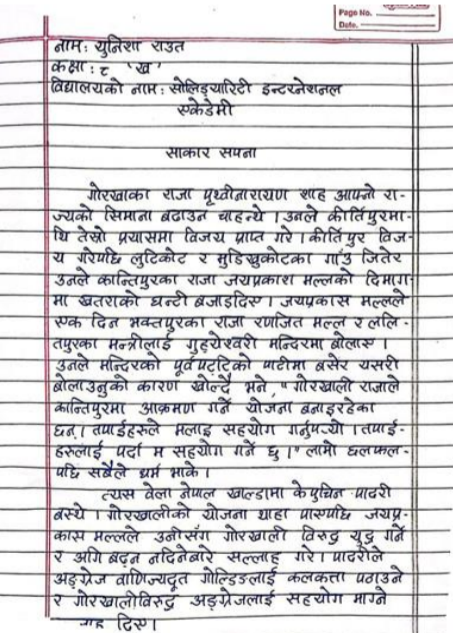 Page No.
Date.
नाम: युनिशा राउत
कक्षा: ८ 'ख'
विद्यालयको नाम: सोलिड्यारिटी इन्टरनेशनल
एकेडेमी
साकार सपना
गोरखाका राजा पृथ्वीनारायण शाह आफ्नो रा-
ज्यको सिमाना बढाउन चाहन्थे । उनले कीर्तिपुरमा-
थि तेस्रो प्रयासमा विजय प्राप्त गरे । कीर्तिपुर विज-
य गरेपछि लुटिकोट र मुडिखुकोटका गाउँ जितेर
उनले कान्तिपुरका राजा जयप्रकाश मल्लको दिमाग-
मा खतराको घन्टी बजाइदिए । जयप्रकास मल्लले
एक दिन भक्तपुरका राजा रणजित मल्ल र ललि-
तपुरका मन्त्रीलाई गुह्येश्वरी मन्दिरमा बोलाए ।
उनले मन्दिरको पूर्वपट्टिको पाटीमा बसेर यसरी
बोलाउनुको कारण खोल्दै भने, "गोरखाली राजाले
कान्तिपुरमा आक्रमण गर्ने योजना बनाइरहेका
छन् । तपाईहरूले मलाइ सहयोग गर्नुपर्‍यो । तपाई-
हरूलाई पर्दा म सहयोग गर्ने छु ।" लामो छलफल-
पछि सबैले धर्म भाके ।
त्यस वेला नेपाल खाल्डामा केपुचिन पादरी
बस्थे । गोरखालीको योजना थाहा पाएपछि जयप्र-
कास मल्लले उनीसँग गोरखाली विरुद्ध युद्ध गर्ने
र अगि बढ्न नदिनेबारे सल्लाह गरे । पादरीले
अङ्ग्रेज वाणिज्यदूत गोल्डिङलाई कलकत्ता पठाउने
र गोरखालीविरुद्ध अङ्ग्रेजलाई सहयोग माग्ने
दिए ।